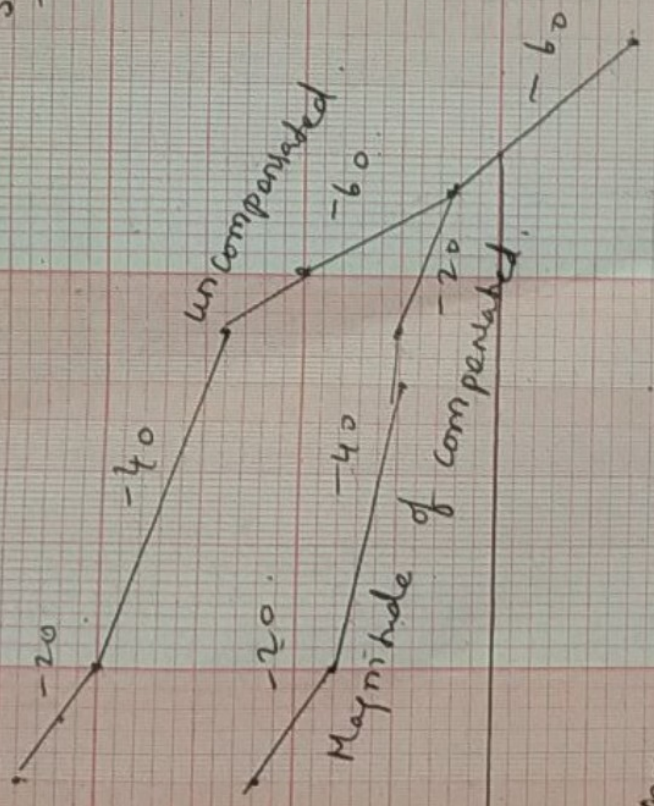 -20
-40
uncompensated.
-60
-20.
-40
-20
-60
Magnitude of compensated.